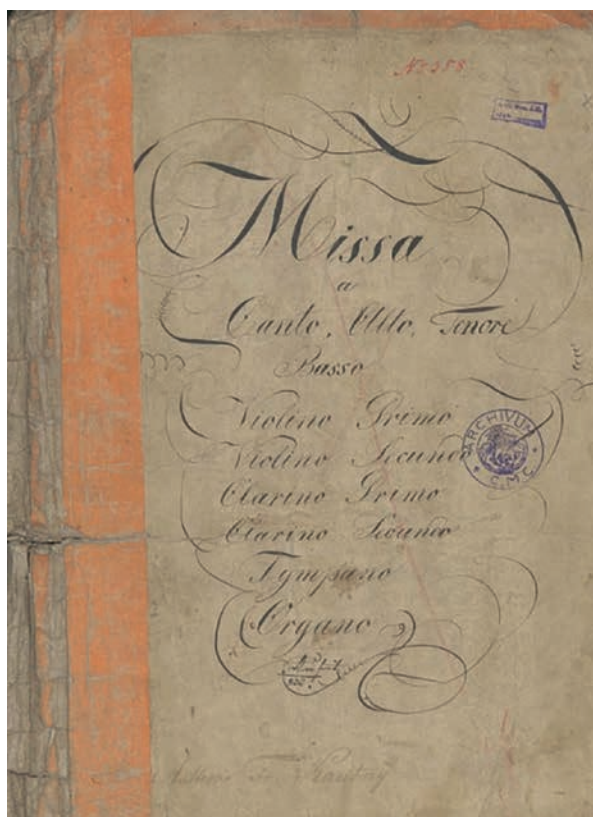 No 358
Missa
a
Canto, Alto, Tenore
Basso
Violino Primo
Violino Secundo
Clarino Primo
Clarino Secundo
Tympano
Organo
ARCHIVUM
C.M.C.